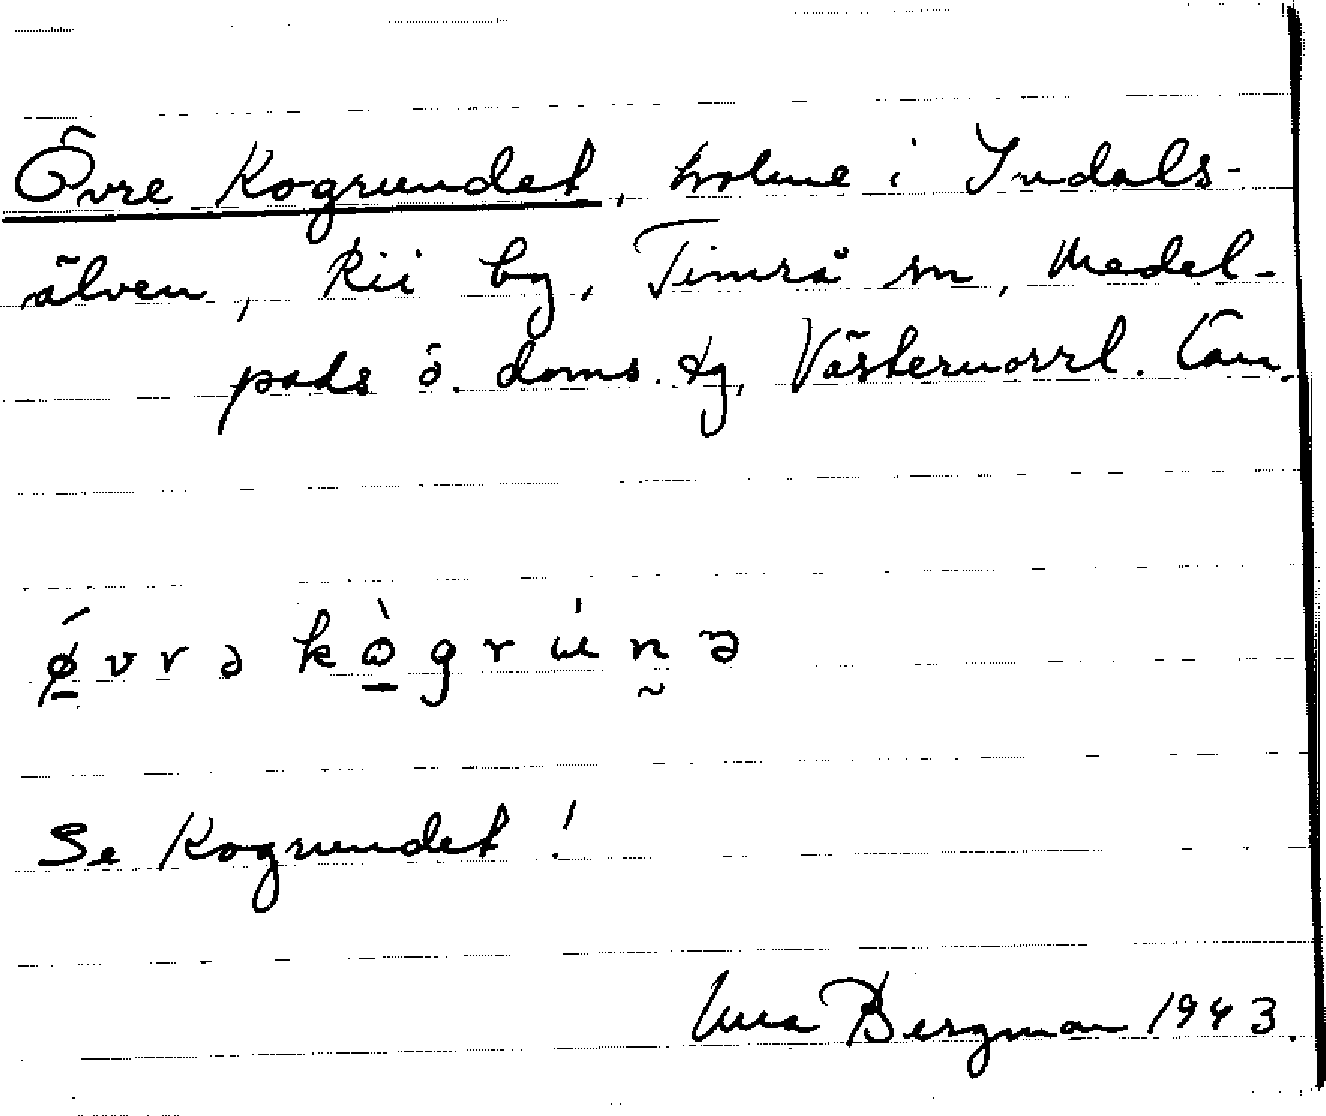 Övre Kogrundet, holme i Indals-
älven, Rii by, Timrå sn, Medel-
pads ö. doms. tg, Västernorrl. län.
ǿvrə kògrún̰ə
Se Kogrundet!
Bergman 1943.